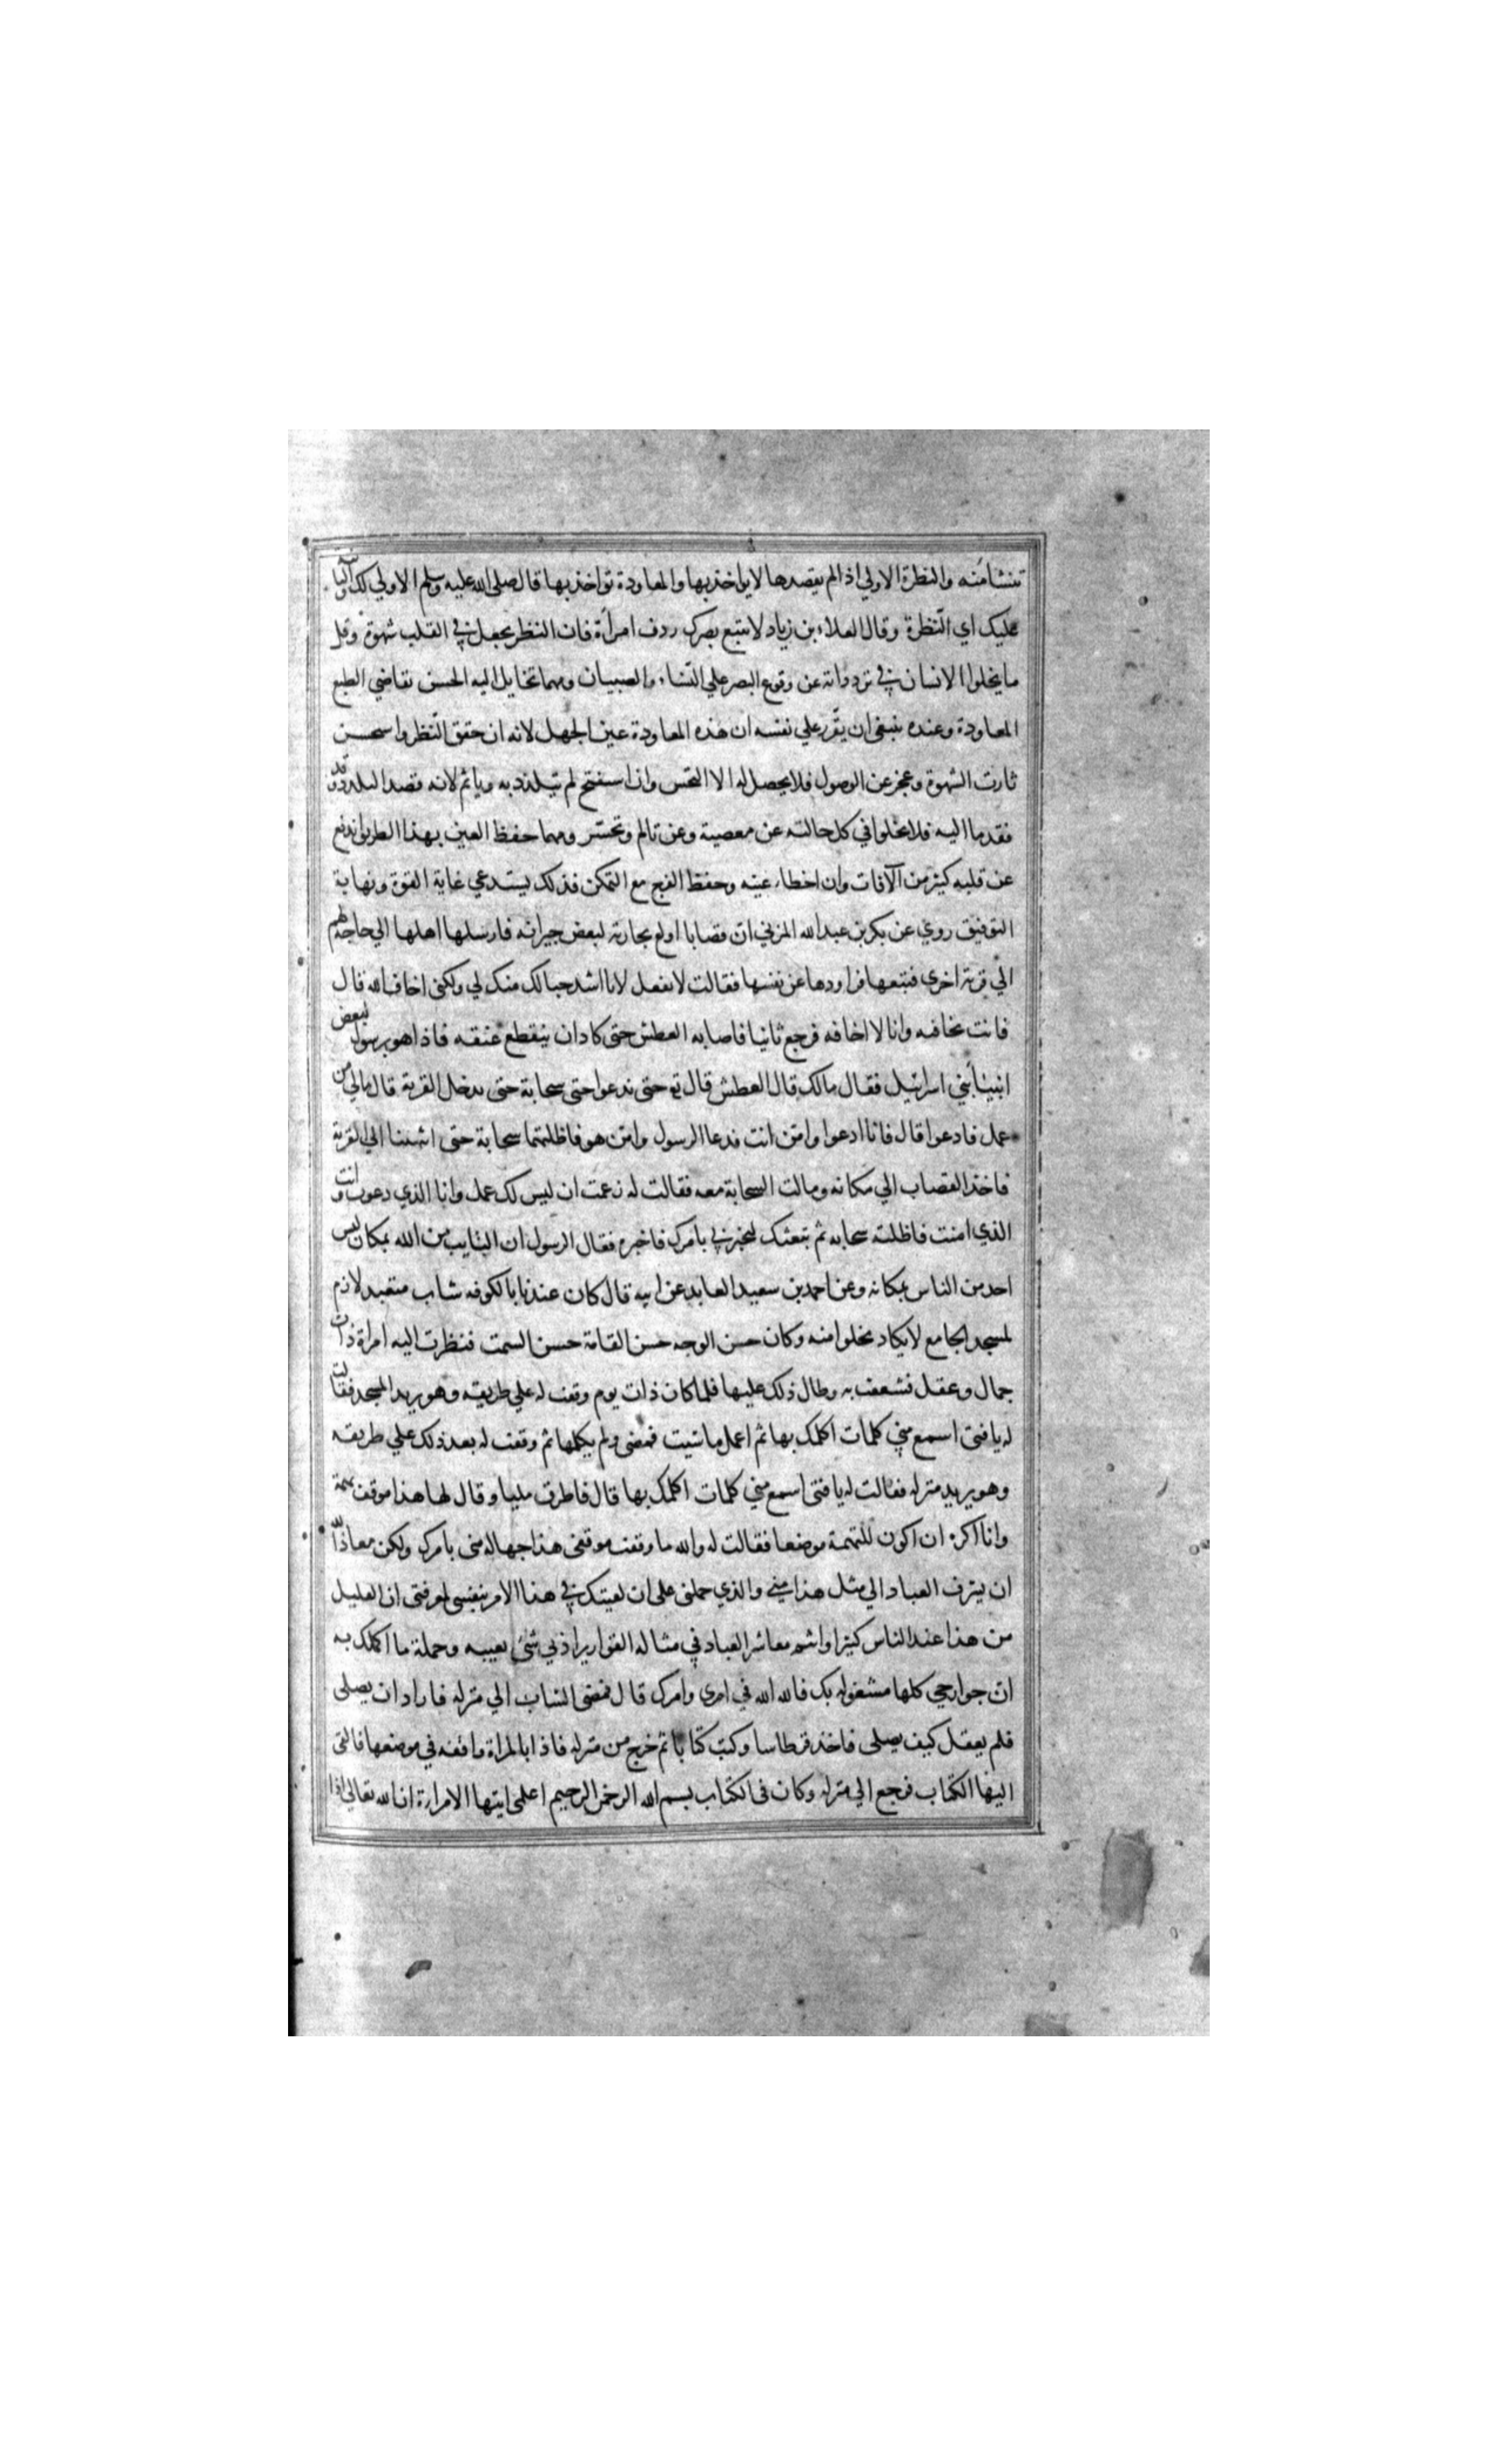 تنشا منه والنظرة الاولي اذا لم يقصدها لا يواخذ بها والمعاودة تواخذ بها قال صلى الله عليه وسلم الاولي لك والثانية
عليك اي النظرة وقال العلاء بن زياد لا تتبع بصرك ردف امرأة فان النظر يجعل في القلب شهوة وقل
ما يخلوا الانسان في تردداته عن وقوع البصر علي النساء والصبيان ومهما تخايل اليه الحسن تقاضي الطبع
المعاودة وعنده ينبغي ان يقرر علي نفسه ان هذه المعاودة عين الجهل لانه ان حقق النظر واستحسن
ثارت الشهوة وعجز عن الوصول فلا يحصل له الا التحسر وان استقبح لم يتلذذ به وياثم لانه قصد التلذذ
فقد ما اليه فلا يخلوا في كل حالته عن معصية وعن تالم وتحسر ومهما حفظ العين بهذا الطريق اندفع
عن قلبه كثير من الآفات وان اخطاء عينه وحفظ الفرج مع التمكن فذلك يستدعي غاية القوة ونهاية
التوفيق روي عن بكر بن عبد الله المزني ان قصابا اولع بجارية لبعض جيرانه فارسلها اهلها الي حاجة لهم
الي قرية اخري فتبعها فراودها عن نفسها فقالت لا تفعل لانا اشد حبا لك منك لي ولكني اخاف الله قال
فانت تخافه وانا لا اخافه فرجع ثانيا فاصابه العطش حتى كاد ان ينقطع عنقه فاذا هو برسول لبعض
انبيا بني اسرائيل فقال مالك قال العطش قال تع حتى ندعوا حتى سحابة حتى ندخل القرية قال مالي من
عمل فادعوا قال فانا ادعوا وامن انت فدعا الرسول وامن هو فاظلتهما سحابة حتى انتهينا الي القرية
فاخذ القصاب الي مكانه ومالت السحابة معه فقالت له زعمت ان ليس لك عمل وانا الذي دعوت وانت
الذي امنت فاظلته سحابه ثم تبعتك لتخبرني بامرك فاخبره فقال الرسول ان التايب من الله بمكان ليس
احد من الناس بمكانه وعن احمد بن سعيد العابد عن ابيه قال كان عندنا بالكوفه شاب متعبد لازم
لمسجد الجامع لا يكاد يخلوا منه وكان حسن الوجه حسن القامة حسن السمت فنظرت اليه امراة ذات
جمال وعقل فشعفت به وطال ذلك عليها فلما كان ذات يوم وقفت له علي طريقه وهو يريد المسجد فقالت
له يا فتى اسمع مني كلمات اكلمك بها ثم اعمل ما شيت فمضى ولم يكلمها ثم وقفت له بعد ذلك علي طريقه
وهو يريد منزله فقالت له يا فتى اسمع مني كلمات اكلمك بها قال فاطرق مليا وقال لها هذا موقف تهمة
وانا اكره ان اكون للتهمة موضعا فقالت له والله ما وقفت موقفي هذا جهالة مني بامرك ولكن معاذ الله
ان يترف العباد الي مثل هذا مني والذي حملني على ان لقيتك في هذا الامر بنفسي لمعرفتي ان القليل
من هذا عند الناس كثيرا وانتم معاشر العباد في مثاله القوارير اذني شئ يعيبه وجملة ما اكلمك به
ان جوارحي كلها مشغوله بك فالله الله في امري وامرك قال فمضى الشاب الي منزله فاراد ان يصلي
فلم يعقل كيف يصلي فاخذ قرطاسا وكتب كتابا ثم خرج من منزله فاذا بالمراة واقفه في موضعها فالقى
اليها الكتاب فرجع الي منزله وكان في الكتاب بسم الله الرحمن الرحيم اعلمي ايتها الامراة ان الله تعالي اذا